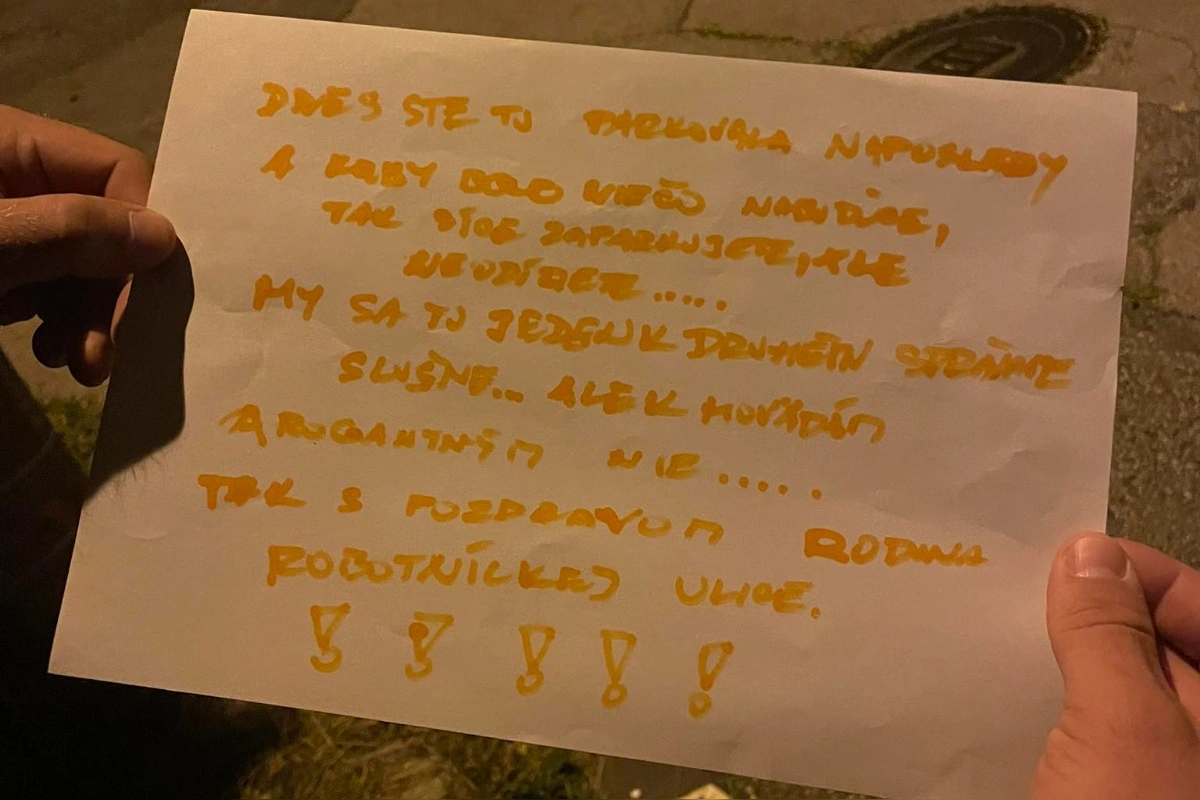 DNES STE TU PARKOVALA NAPOSLEDY
A KEBY BOLO NIEČO NABUDÚCE,
TAK SÍCE ZAPARKUJETE, ALE
NEODÍDETE.....
MY SA TU JEDEN K DRUHÉMU SPRÁVAME
SLUŠNE... ALE K HOVÄDÁM
AROGANTNÝM NIE.....
TAK S POZDRAVOM RODINA
ROBOTNÍCKEJ ULICE.
! ! ! ! !